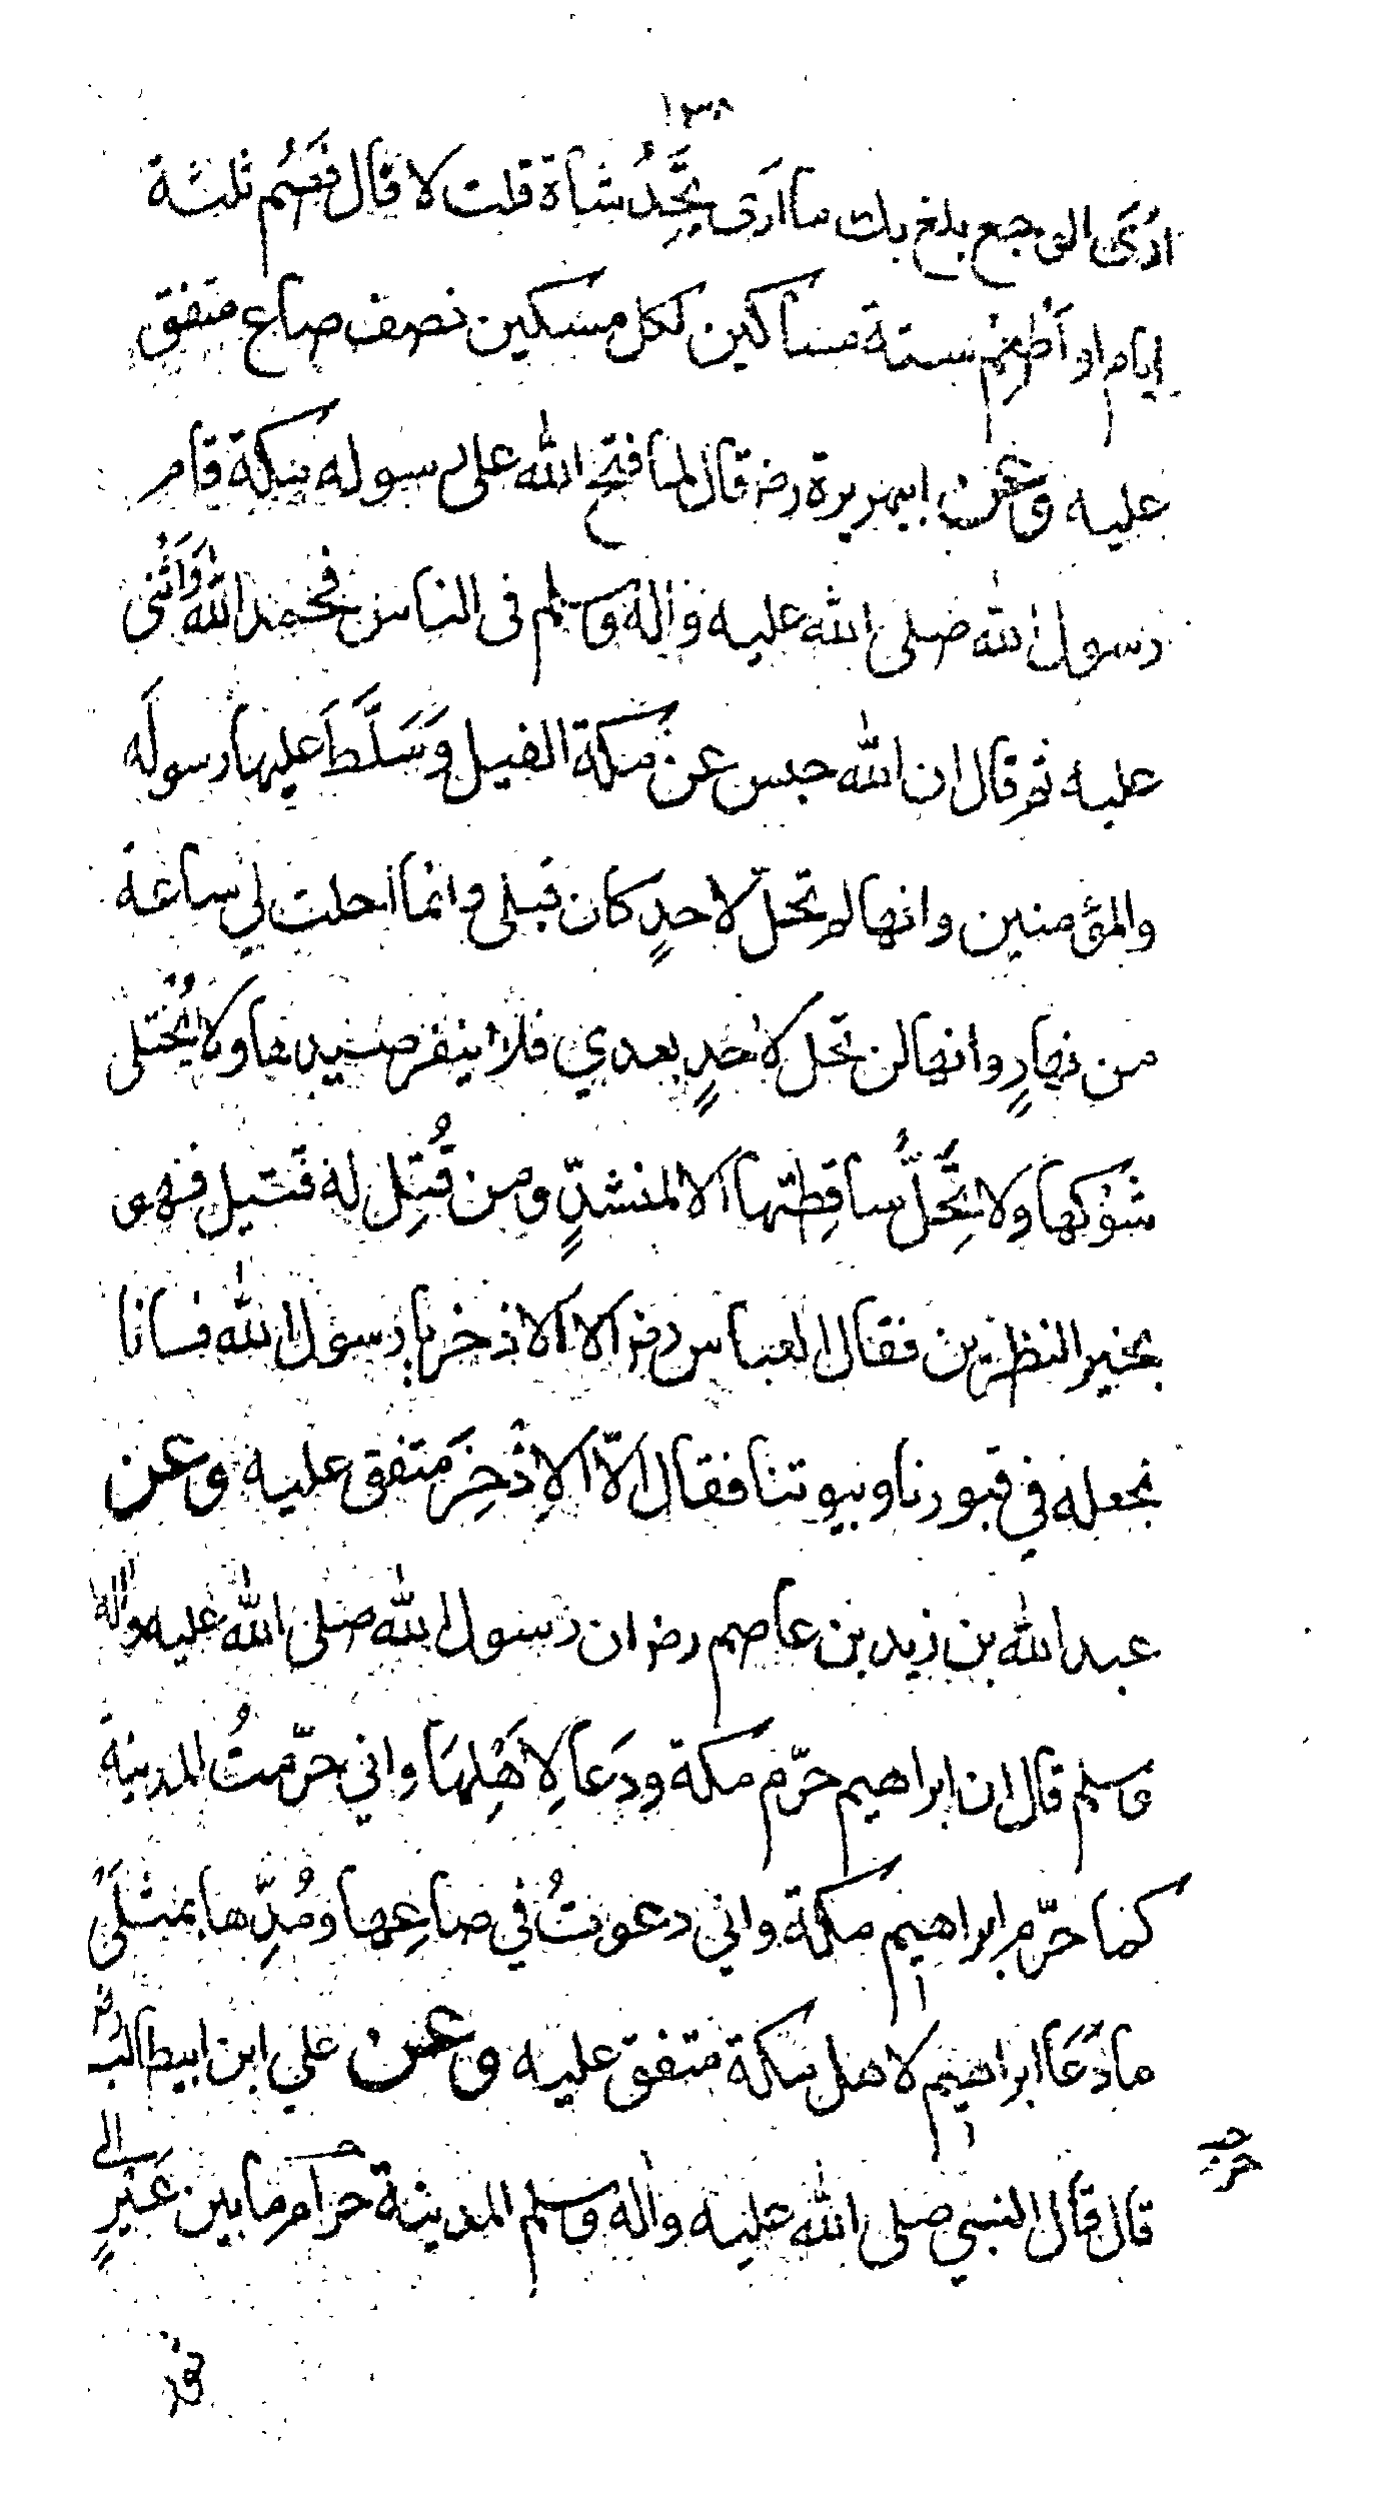 ١٣٨
اُرَى الوجع بلغ بك ما ارى تَجِدُ شاة قلت لا قال فَصُم ثلثة
ايام او أَطْعِمْ ستة مساكين لكل مسكين نصف صاع متفق
عليه وعن ابيهريرة رض قال لما فتح الله على رسوله مكة قام
رسول الله صلى الله عليه واٰله وسلم فى الناس فحمد الله وَاَثْنٰى
عليه ثم قال ان الله حبس عن مكة الفيل وَسَلَّطَ عليها رسولَه
والمؤمنين وانها لم تحلّ لاحدٍ كان قبلى وانما احلت لي ساعة
من نهارٍ وانها لن تحل لاحدٍ بعدي فلا ينفر صيدها ولا يُختلى
شوْكها ولا تَحِلُّ ساقِطتها الا لمنشدٍ ومن قُتِل له قتيل فهو
بخير النظرين فقال العباس رض الا الاذخر يا رسول الله فانا
نجعله في قبورنا وبيوتنا فقال الّا الاِذْخِرَ متفق عليه وعن
عبد الله بن زيد بن عاصم رض ان رسول الله صلى الله عليه واٰله
وسلم قال ان ابراهيم حرّم مكة ودَعَا لِاَهْلِهَا واني حرّمتُ المدينة
كما حرّم ابراهيم مكة واني دعوتُ في صاعِها ومُدِّها بمثلَىْ
ما دَعَا ابراهيم لاهل مكة متفق عليه وعن علي ابن ابيطالب رض
قال قال النبي صلى الله عليه واٰله وسلم المدينة حرام ما بين عَيْرٍ الى